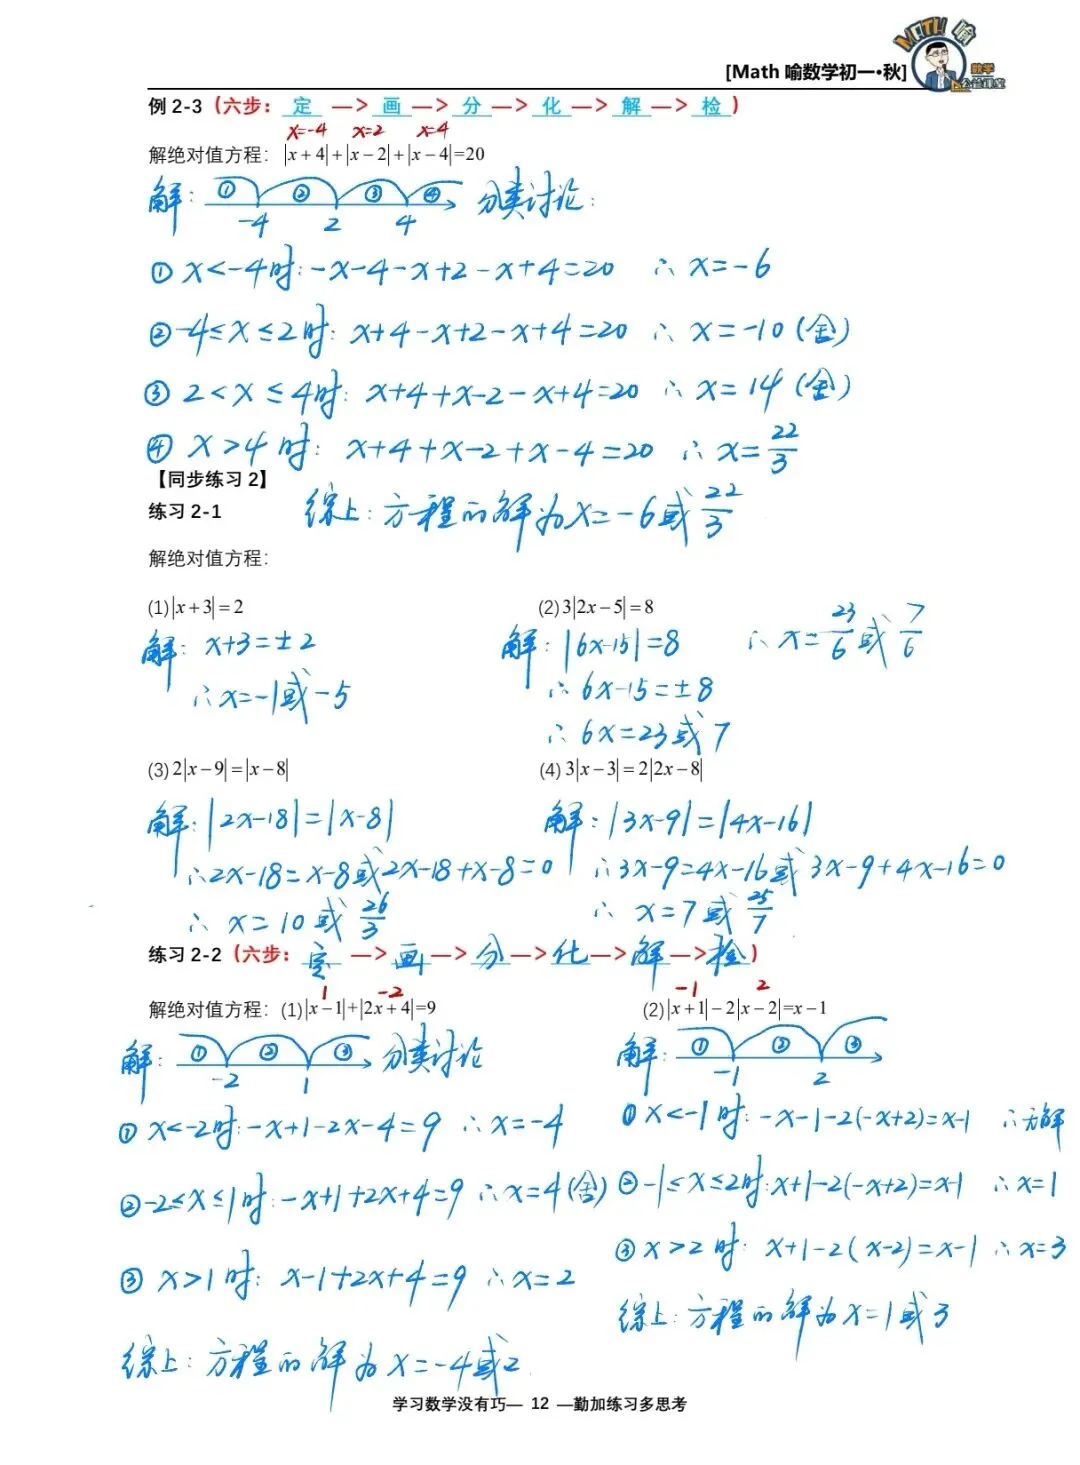 [Math 喻数学初一•秋]
MATH 喻
数学
公益课堂
例 2-3（六步： 定 —> 画 —> 分 —> 化 —> 解 —> 检 ）
x=-4 x=2 x=4
解绝对值方程： |x+4|+|x-2|+|x-4|=20
解： ① ② ③ ④ 分类讨论：
-4 2 4
① x<-4时：-x-4-x+2-x+4=20 ∴ x=-6
② -4≤x≤2时：x+4-x+2-x+4=20 ∴ x=-10（舍）
③ 2<x≤4时：x+4+x-2-x+4=20 ∴ x=14（舍）
④ x>4时：x+4+x-2+x-4=20 ∴ x=22/3
【同步练习 2】
综上：方程的解为x=-6或22/3
练习 2-1
解绝对值方程：
(1)|x+3|=2
解：x+3=±2
∴x=-1或-5
(2)3|2x-5|=8
解：|6x-15|=8 ∴ x=23/6或7/6
∴ 6x-15=±8
∴ 6x=23或7
(3)2|x-9|=|x-8|
解：|2x-18|=|x-8|
∴2x-18=x-8或2x-18+x-8=0
∴ x=10或26/3
(4)3|x-3|=2|2x-8|
解：|3x-9|=|4x-16|
∴3x-9=4x-16或3x-9+4x-16=0
∴ x=7或25/7
练习 2-2（六步： 定 —> 画 —> 分 —> 化 —> 解 —> 检 ）
1 -2
解绝对值方程：(1)|x-1|+|2x+4|=9
解： ① ② ③ 分类讨论
-2 1
① x<-2时：-x+1-2x-4=9 ∴x=-4
② -2≤x≤1时：-x+1+2x+4=9 ∴x=4（舍）
③ x>1时：x-1+2x+4=9 ∴x=2
综上：方程的解为x=-4或2
-1 2
(2)|x+1|-2|x-2|=x-1
解： ① ② ③
-1 2
① x<-1时：-x-1-2(-x+2)=x-1 ∴无解
② -1≤x≤2时：x+1-2(-x+2)=x-1 ∴x=1
③ x>2时：x+1-2(x-2)=x-1 ∴x=3
综上：方程的解为x=1或3
学习数学没有巧— 12 —勤加练习多思考